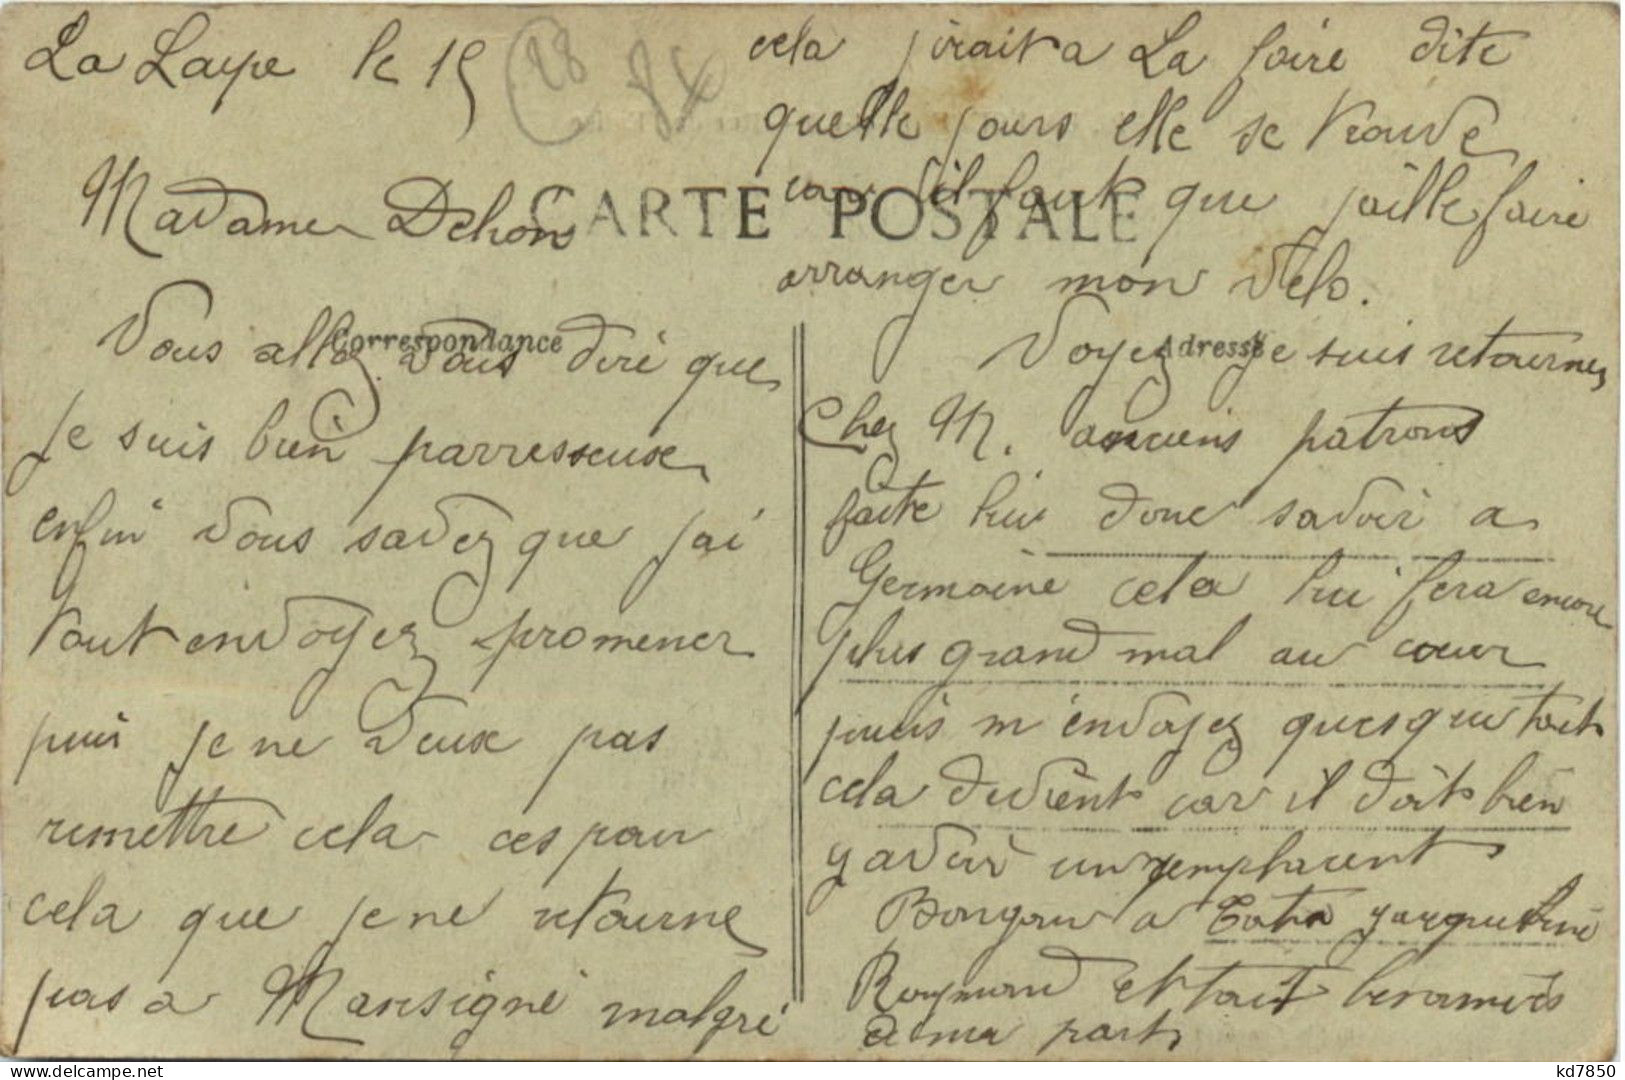 La Laye le 15
28 84
Madame Dehon
CARTE POSTALE
Correspondance
Vous allez vous dire que
je suis bien parresseuse
enfin vous savez que jai
tout envoyez promener
puis je ne veux pas
remettre cela ces pour
cela que je ne retourne
pas a Marsigné malgré
cela jirait a La foire dite
quelle jours elle se trouve
car il faut que jaille faire
arranger mon velo.
Adresse
Voyez je suis retournez
Chez M. anciens patrons
faite lui donc savoir a
Germaine cela lui fera encore
plus grand mal au coeur
puis m'envoyez quesque tout
cela devient car il doit bien
y avoir un remplacent
Bonjour a Tota Jacqueline
Raymond et tout les amies
de ma part
kd7850